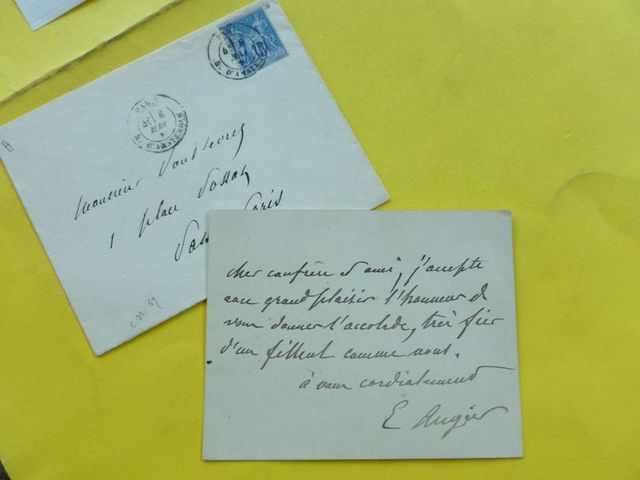 PARIS
R. D'AMSTERDAM
R. D'AMSTERDAM
Monsieur
1 place Possoz
Passy Paris
cher confrère et ami, j'accepte
avec grand plaisir l'honneur de
vous donner l'accolade, très fier
d'un filleul comme vous.
à vous cordialement
E Augier